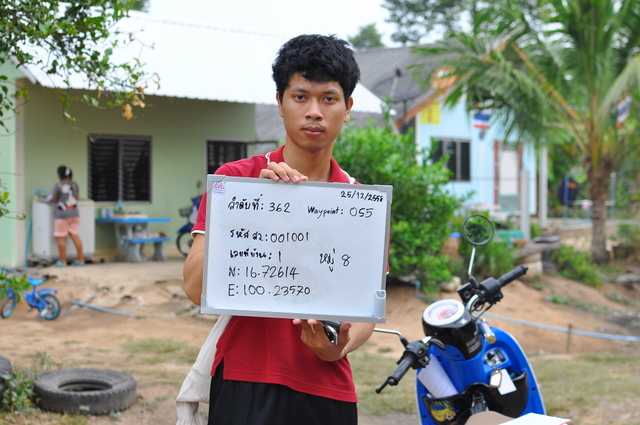 25/12/2558
ลำดับที่: 362 Waypoint: 055
รหัส สว.: 001001
เลขที่บ้าน: 1 หมู่ 8
N: 16.72614
E: 100.23570